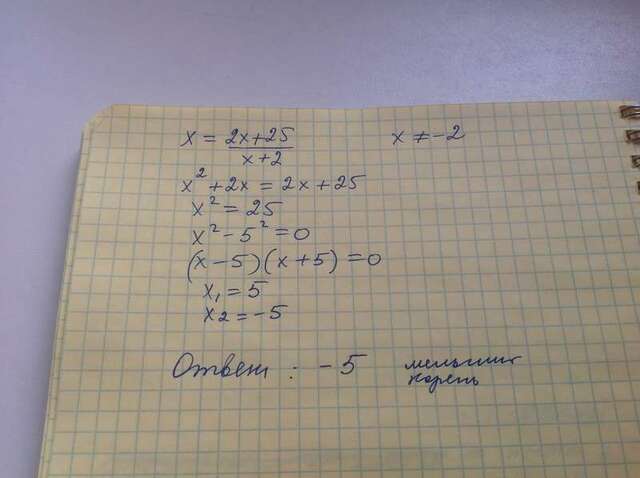 x = 2x+25 / x+2 x ≠ -2
x² + 2x = 2x + 25
x² = 25
x² - 5² = 0
(x - 5)(x + 5) = 0
x₁ = 5
x2 = -5
Ответ : -5 меньший
корень